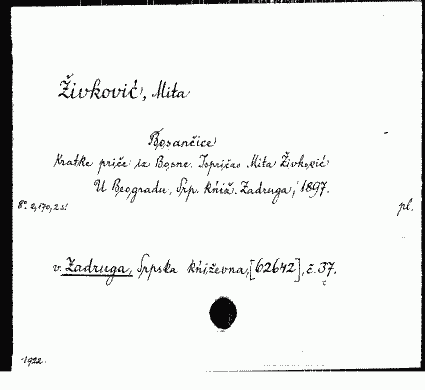 Živković, Mita
Bosančice
Kratke priče iz Bosne. Ispričao Mita Živković
U Beogradu, Srp. kńiž. Zadruga, 1897.
8°. 2, 170, 2 s.
pl.
v. Zadruga, Srpska kńiževna, [62642], č. 37.
1922.